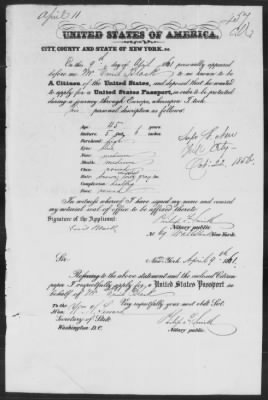 April 11
UNITED STATES OF AMERICA,
CITY, COUNTY AND STATE OF NEW YORK, ss:
On the 9th day of April 1861 personally appeared
before me Mr to me known to be
A Citizen of the United States, and deposed that he wanted
to apply for a United States Passport, in order to be protected
during a journey through Europe, whereupon I took
his personal description as follows:
Age: 45 years
Stature: 5 feet 6 inches
Forehead: high
Eyes: blue
Nose: medium
Mouth: medium
Chin: round
Hair: brown
Complexion: healthy
Face: round
Oct. 22. 1856
In witness whereof I have signed my name and caused
my notarial seal of office to be affixed thereto
Signature of the Applicant:
Notary public.
New York.
New York April 9th 1861.
Sir:
Referring to the above statement and the enclosed Citizen
paper I respectfully apply for a United States Passport in
behalf of Mr
Very respectfully your most obdt Svt.
To the Hon
W. H. Seward
Secretary of State
Washington D.C.
Notary public.